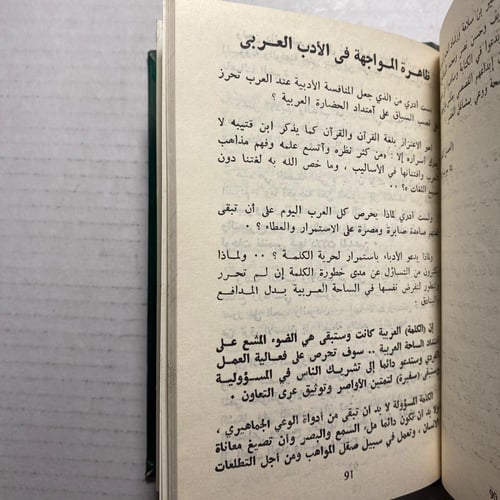 ظاهرة المواجهة فى الأدب العربى
لست ادري من الذي جعل المنافسة الأدبية عند العرب تحرز
قصب السباق على أمتداد الحضارة العربية ؟
أهو الاعتزاز بلغة القرآن والقرآن كما يذكر ابن قتيبه لا
أسراره إلا : «من كثر نظره وأتسع علمه وفهم مذاهب
العرب وافتنانها في الأساليب ، وما خص الله به لغتنا دون
اللغات »؟ ٠٠
ولست ادري لماذا يحرص كل العرب اليوم على أن تبقى
صامدة صابرة ومصرة على الاستمرار والعطاء ؟ ٠
ولماذا يدعو الأدباء باستمرار لحرية الكلمة ؟ ٠٠ ولماذا
من التساؤل عن مدى خطورة الكلمة إن لم تحرر
لتفرض نفسها في الساحة العربية بدل المدافع
إن (الكلمة) العربية كانت وستبقى هي الضوء المشع على
امتداد الساحة العربية ٠٠ سوف تحرص على فعالية العمل
وستدعو دائما إلى تشريك الناس في المسؤولية
وستبقى (سفيرة) لتمتين الأواصر وتوثيق عرى التعاون ٠
الكلمة المسؤولة لا بد ان تبقى من أدواة الوعي الجماهيري ،
ولا بد ان تكون دائما ملء السمع والبصر وأن تصيغ معاناة
الانسان ، وتعمل في سبيل صقل المواهب ومن أجل التطلعات
91